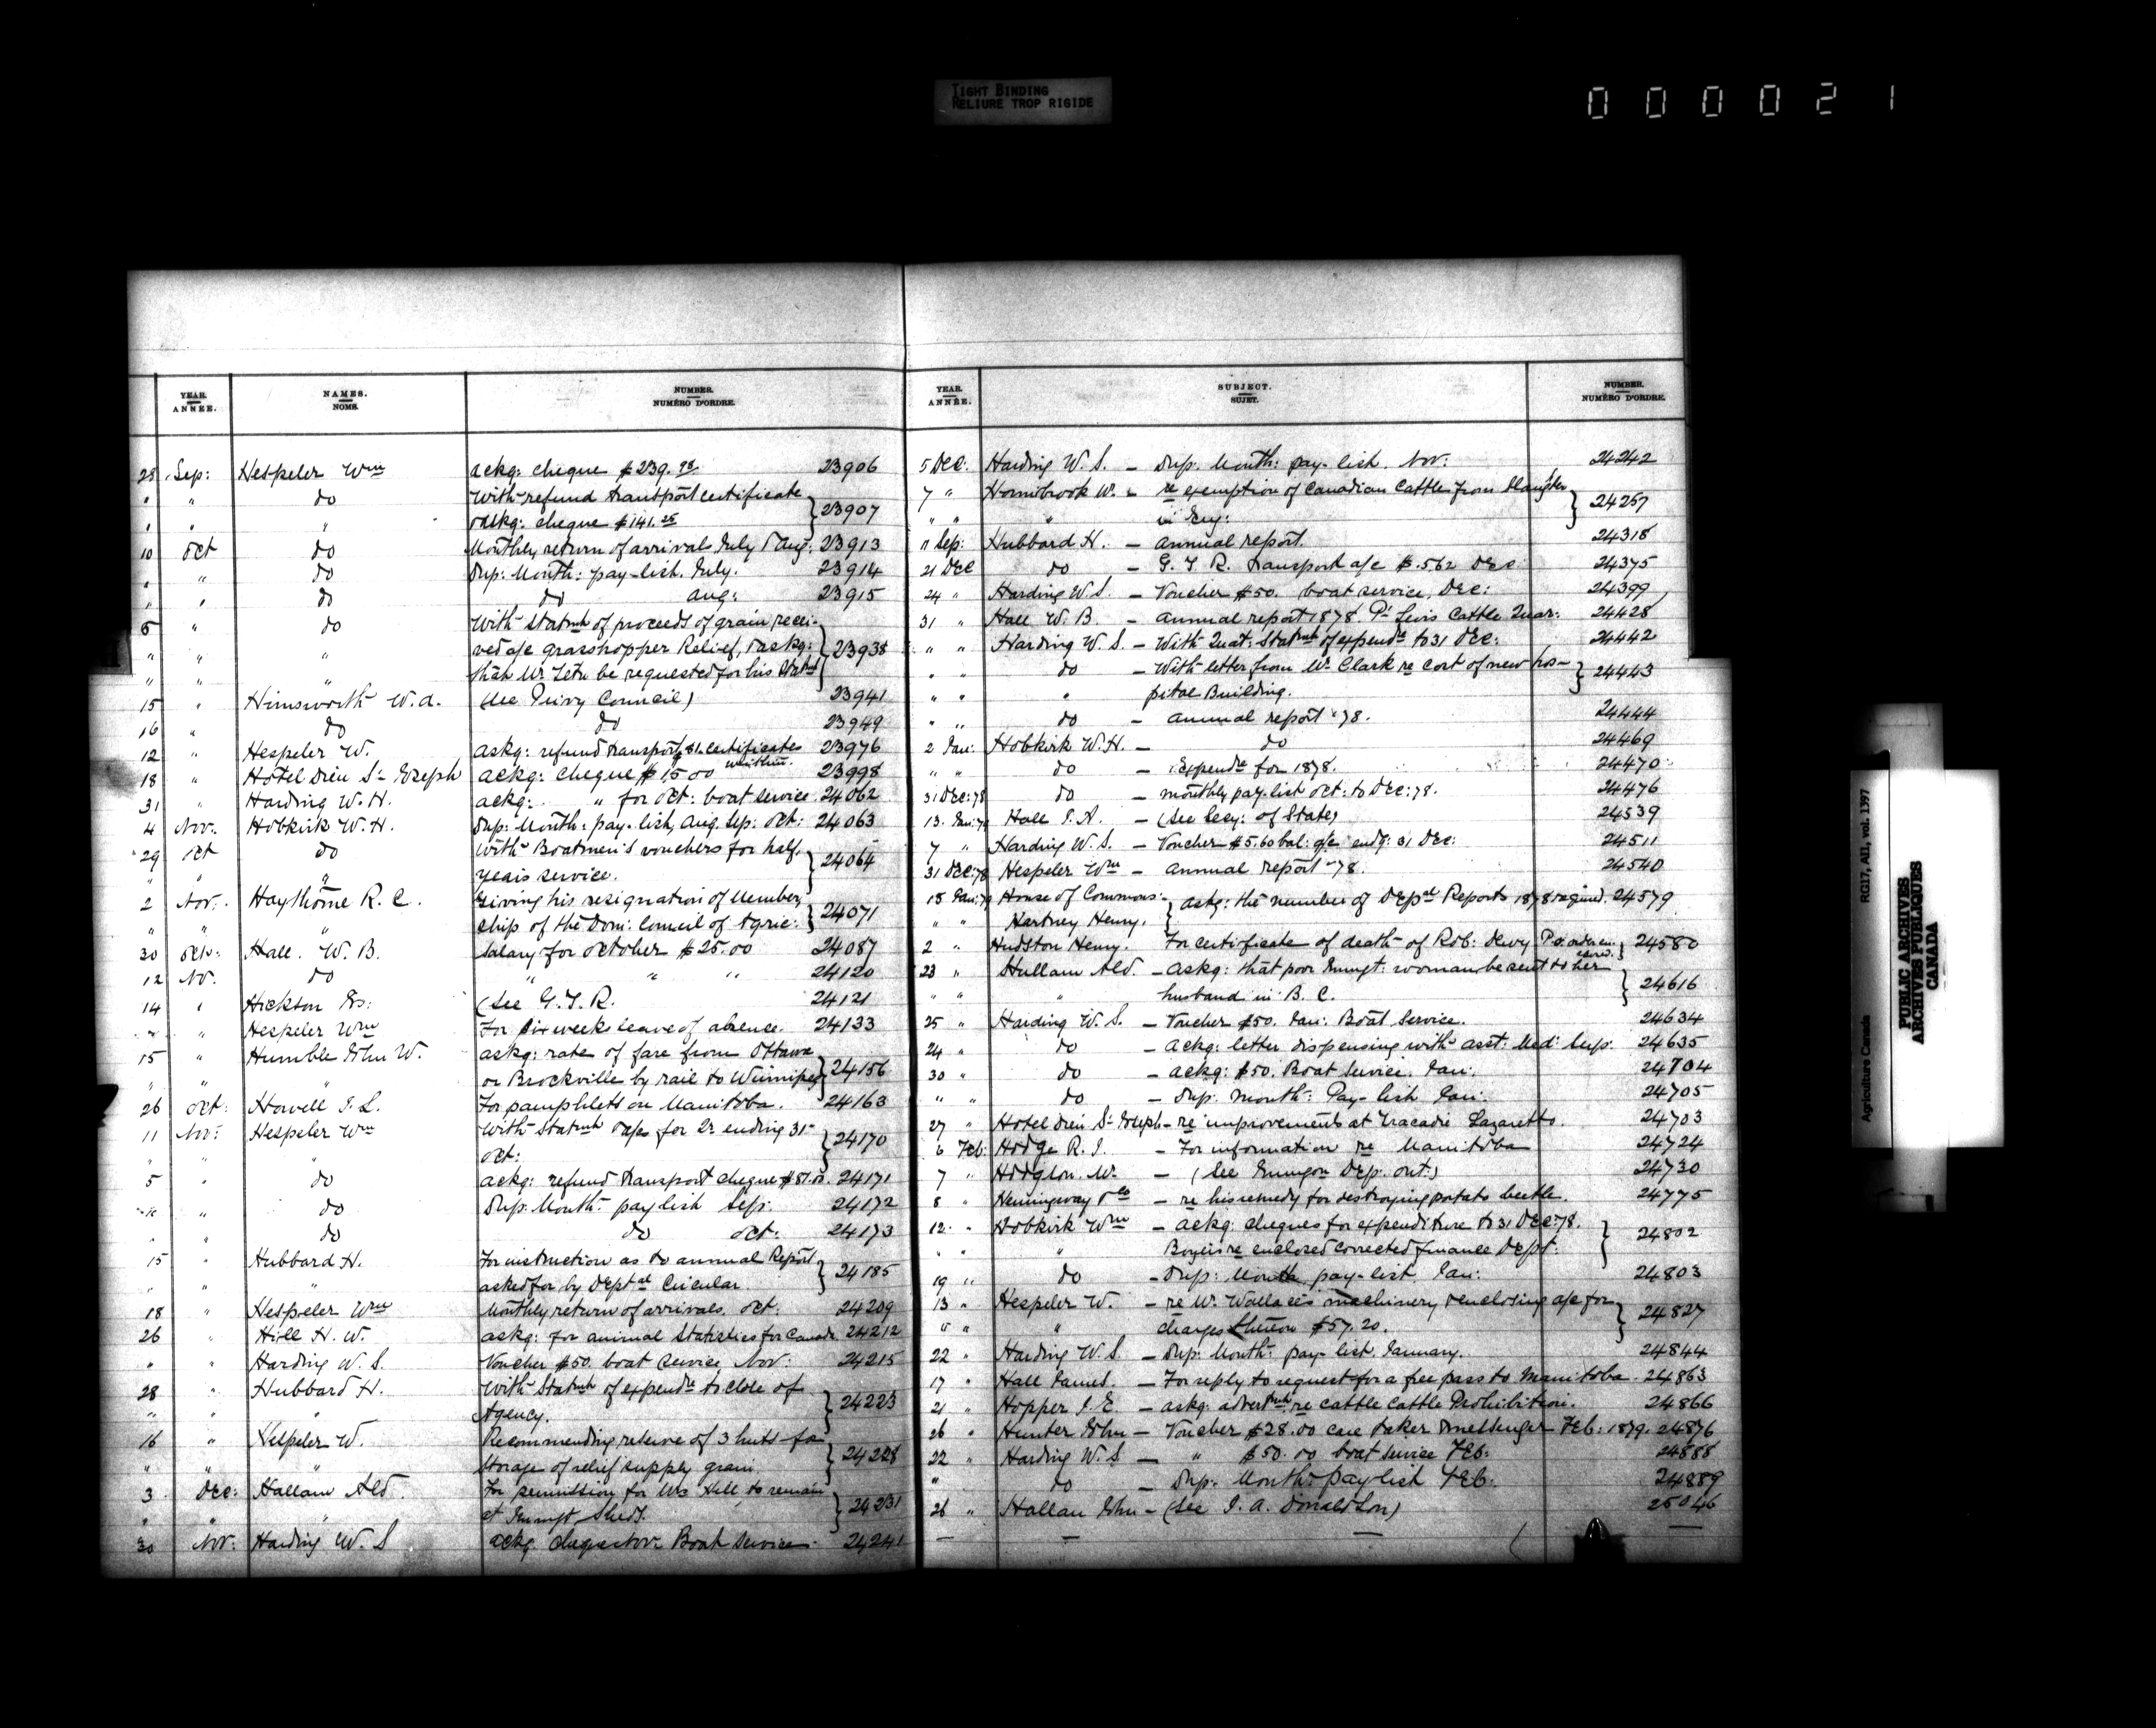 TIGHT BINDING
RELIURE TROP RIGIDE
000021
YEAR. ANNÉE. NAMES. NOMS. NUMBER. NUMÉRO D'ORDRE.
28 Sep: Hespeler Wm ackg: cheque $239.98 23906
" " do With refund transport certificate
" " " & askg: cheque $141.25 } 23907
10 Oct do Monthly return of arrivals July & Aug: 23913
" " do Dup: Month: pay-list. July. 23914
" " do do Aug: 23915
8 " do With Statmt of proceeds of grain recei-
" " " ved a/c grasshopper Relief, & askg:
" " " that Mr. be requested for his Statmt } 23938
15 " Himsworth W. A. (See Privy Council) 23941
16 " do do 23949
12 " Hespeler W. askg: refund transport 81. certificates 23976
18 " Hotel Dieu St. Joseph ackg: cheque $15.00 23998
31 " Harding W. H. ackg: " for Oct: boat service 24062
4 Nov. Hobkirk W. H. Dup: Month: pay-list, Aug. Sep: Oct: 24063
29 Oct do With Boatmen's vouchers for half
" " " years service. } 24064
2 Nov: Haythorne R. C. Giving his resignation of Member
" " " ship of the Dom: Council of Agric: } 24071
30 Oct: Hall. W. B. Salary for October $25.00 24087
12 No. do " " " 24120
14 " Hickson Js: (See G. T. R. 24121
" " Hespeler Wm For six weeks leave of absence. 24133
15 " Humble John W. askg: rate of fare from Ottawa
" " " or Brockville by rail to Winnipeg } 24156
26 Oct: Howell J. L. For pamphlets on Manitoba. 24163
11 Nov: Hespeler Wm With Statmt for Qr ending 31st
" " " Oct: } 24170
5 " do ackg: refund transport cheque $81.00. 24171
" " do Dup: Month: pay list Sep: 24172
" " do do Oct: 24173
15 " Hubbard H. For instruction as to annual Report
" " " asked for by Deptal Circular. } 24185
18 " Hespeler Wm Monthly return of arrivals. Oct: 24209
26 " Hill H. W. askg: for animal Statistics for Canada. 24212
" " Harding W. S. Voucher $50. boat service Nov: 24215
28 " Hubbard H. With Statmt of expendre to close of
" " " Agency. } 24223
16 " Hespeler W. Recommending reserve of 3 huts for
" " " storage of relief supply grain } 24228
3 Dec: Hallam Ald. For permission for Mrs Hill, to remain
" " " at Immigt Sheds. } 24231
30 Nov: Harding W. S ackg. cheque Nov: Boat service. 24241
YEAR. ANNÉE. SUBJECT. SUJET. NUMBER. NUMÉRO D'ORDRE.
5 Dec: Harding W. S. – Dup: Month: pay-list. Nov: 24242
7 " Hornibrook W. – re exemption of Canadian Cattle from Slaughter
" " " in Eng: } 24257
11 Sep: Hubbard H. – annual report. 24318
21 Dec do – G. T. R. transport a/c $.562 Dec 24375
24 " Harding W. S. – Voucher $50. boat service, Dec: 24399
31 " Hall W. B. – annual report 1878. Pt Levis Cattle Quar: 24428
" " Harding W. S. – With Quat: Statmt of expendre to 31 Dec: 24442
" " do – With letter from Mr. Clark re cost of new hos-
" " " pital Building. } 24443
" " do – annual report '78. 24444
2 Jan: Hobkirk W. H. – do 24469
" " do – Expendre for 1878. 24470
31 Dec: 78 do – monthly pay-list Oct: to Dec: 78. 24476
13. Jan: 79 Hall – (See Secy: of State) 24539
7 " Harding W. S. – Voucher $5.60 bal: a/c endg: 31 Dec: 24511
31 Dec: 78 Hespeler Wm – annual report '78. 24540
18 Jan: 79 House of Commons – } askg: the number of Deptal Reports 1878 required. 24579
" " Hartney Henry.
2 " Hudston Henry. For certificate of death of Rob: Dewy 24580
23 " Hallam Ald. – askg: that poor Immgt: woman be sent to her
" " " husband in B. C. } 24616
25 " Harding W. S. – Voucher $50. Jan: Boat Service. 24634
24 " do – ackg: letter dispensing with asst: Med: Sup: 24635
30 " do – ackg: $50. Boat service. Jan: 24704
" " do – Dup: month: Pay-list Jan: 24705
27 " Hotel Dieu St. Joseph – re improvements at Tracadie Lazaretto. 24703
6 Feb: Hodge R. J. – For information re Manitoba 24724
7 " Hodgson. W. – (See Immgon Dep. Ont:) 24730
8 " Hemingway & Co – re his remedy for destroying potato beetle. 24775
12 " Hobkirk Wm – ackg: cheques for expenditure to 31 Dec: 78.
" " " enclosed corrected finance Dept: } 24802
19 " do – Dup: Month. pay-list. Jan: 24803
13 " Hespeler W. – re Mr. Wallace's machinery & enclosing a/c for
" " " charges thereon $57.20. } 24827
22 " Harding W. S. – Dup: Month: pay-list. January. 24844
17 " Hall James. – For reply to request for a free pass to Manitoba. 24863
21 " Hopper J. E. – askg: advertmt: re cattle cattle Prohibition. 24866
26 " Hunter John – Voucher $28.00 care taker & messenger Feb: 1879. 24876
22 " Harding W. S. – " $50.00 boat service Feb: 24888
" do – Dup: Month: pay list Feb: 24889
26 " Hallam John – (See J. A. Donaldson) 25046
Agriculture Canada RG17, AII, vol. 1397
PUBLIC ARCHIVES
ARCHIVES PUBLIQUES
CANADA